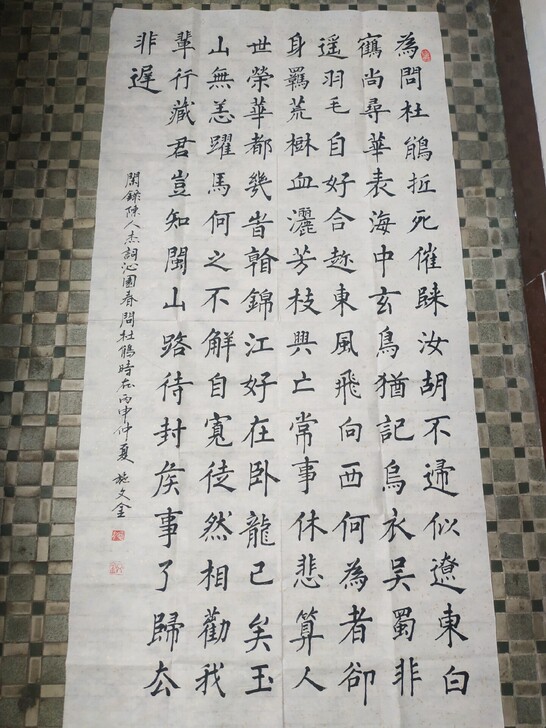 為問杜鵑抵死催歸汝胡不歸似遼東白
鶴尚尋華表海中玄鳥猶記烏衣吳蜀非
遥羽毛自好合趂東風飛向西何為者卻
身羈荒樹血灑芳枝興亡常事休悲算人
世榮華都幾旹看錦江好在卧龍已矣玉
山無恙躍馬何之不解自寬徒然相勸我
輩行藏君豈知閩山路待封矦事了歸去
非遲
閑錄陳人杰詞沁園春問杜鵑時在丙申仲夏 施文金